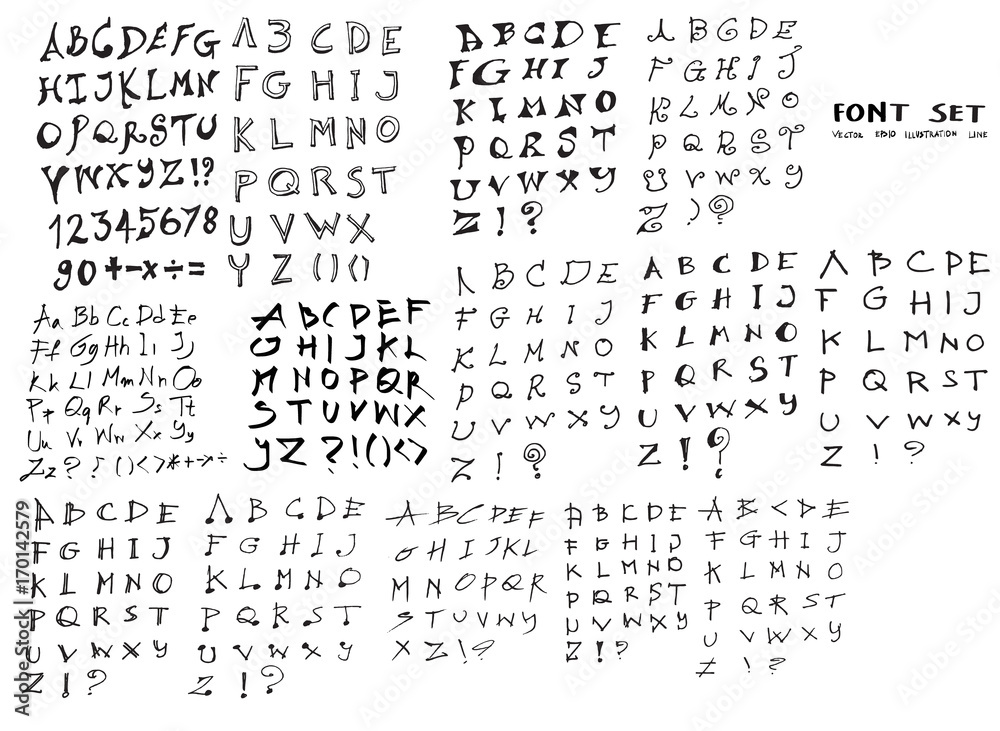 ABCDEFG
HIJKLMN
OPQRSTU
VWXYZ!?
12345678
90+-x÷=
A3CDE
FGHIJ
KLMNO
PQRST
UVWX
YZ()()
ABCDE
FGHIJ
KLMNO
PQRST
UVWXY
Z!?
ABCDE
FGHIJ
KLMNO
PQRST
UVWXY
Z)?
FONT SET
VECTOR EPS10 ILLUSTRATION LINE
Aa Bb Cc Dd Ee
Ff Gg Hh Ii Jj
Kk Ll Mm Nn Oo
Pp Qq Rr Ss Tt
Uu Vv Ww Xx Yy
Zz?!()<>*+-x÷
ABCDEF
GHIJKL
MNOPQR
STUVWX
YZ?!()<>
ABCDE
FGHIJ
KLMNO
PQRST
UVWXY
Z!?
ABCDE
FGHIJ
KLMNO
PQRST
UVWXY
Z!?
ABCDE
FGHIJ
KLMNO
PQRST
UVWXY
Z!?
ABCDE
FGHIJ
KLMNO
PQRST
UVWXY
Z!?
ABCDE
FGHIJ
KLMNO
PQRST
UVWXY
Z!?
ABCDEF
GHIJKL
MNOPQR
STUVWY
XZ!?
ABCDE
FGHIJ
KLMNO
PQRST
UVWXY
Z!?
ABCDE
FGHIJ
KLMNO
PQRST
UVWXY
Z!?
Adobe Stock | #170142579